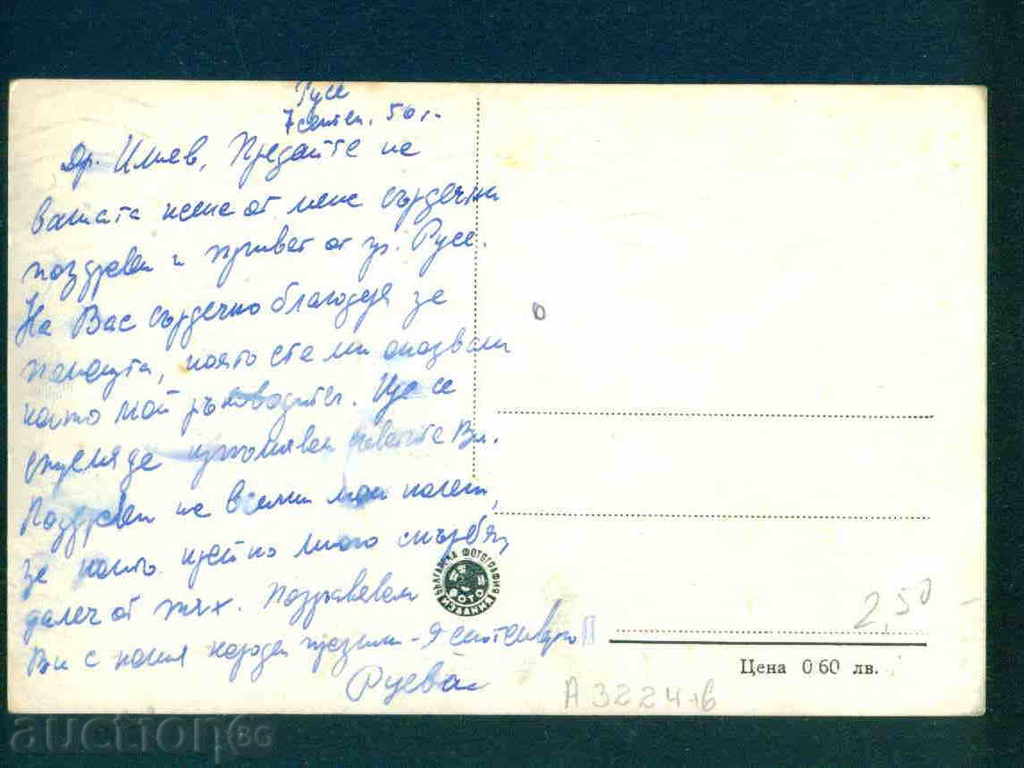 Русе
7 септем. 56 г.
др. Илиев, Предайте на
вашата леля от мене сърдечни
поздрави и привет от гр. Русе.
На Вас сърдечно благодаря за
помощта, която сте ми оказвали
като мой ръководител. Ще се
старая да изпълнявам съветите Ви.
Поздрави на всички мои колеги,
за които крайно много скърбя,
далеч от тях. Поздравявам
Ви с нашия народен празник - 9 септември
Русева
БЪЛГАРСКА ФОТОГРАФИЯ
ФОТО
ИЗДАНИЕ
2,50
Цена 0 60 лв.
А 3224-в
auctionBG